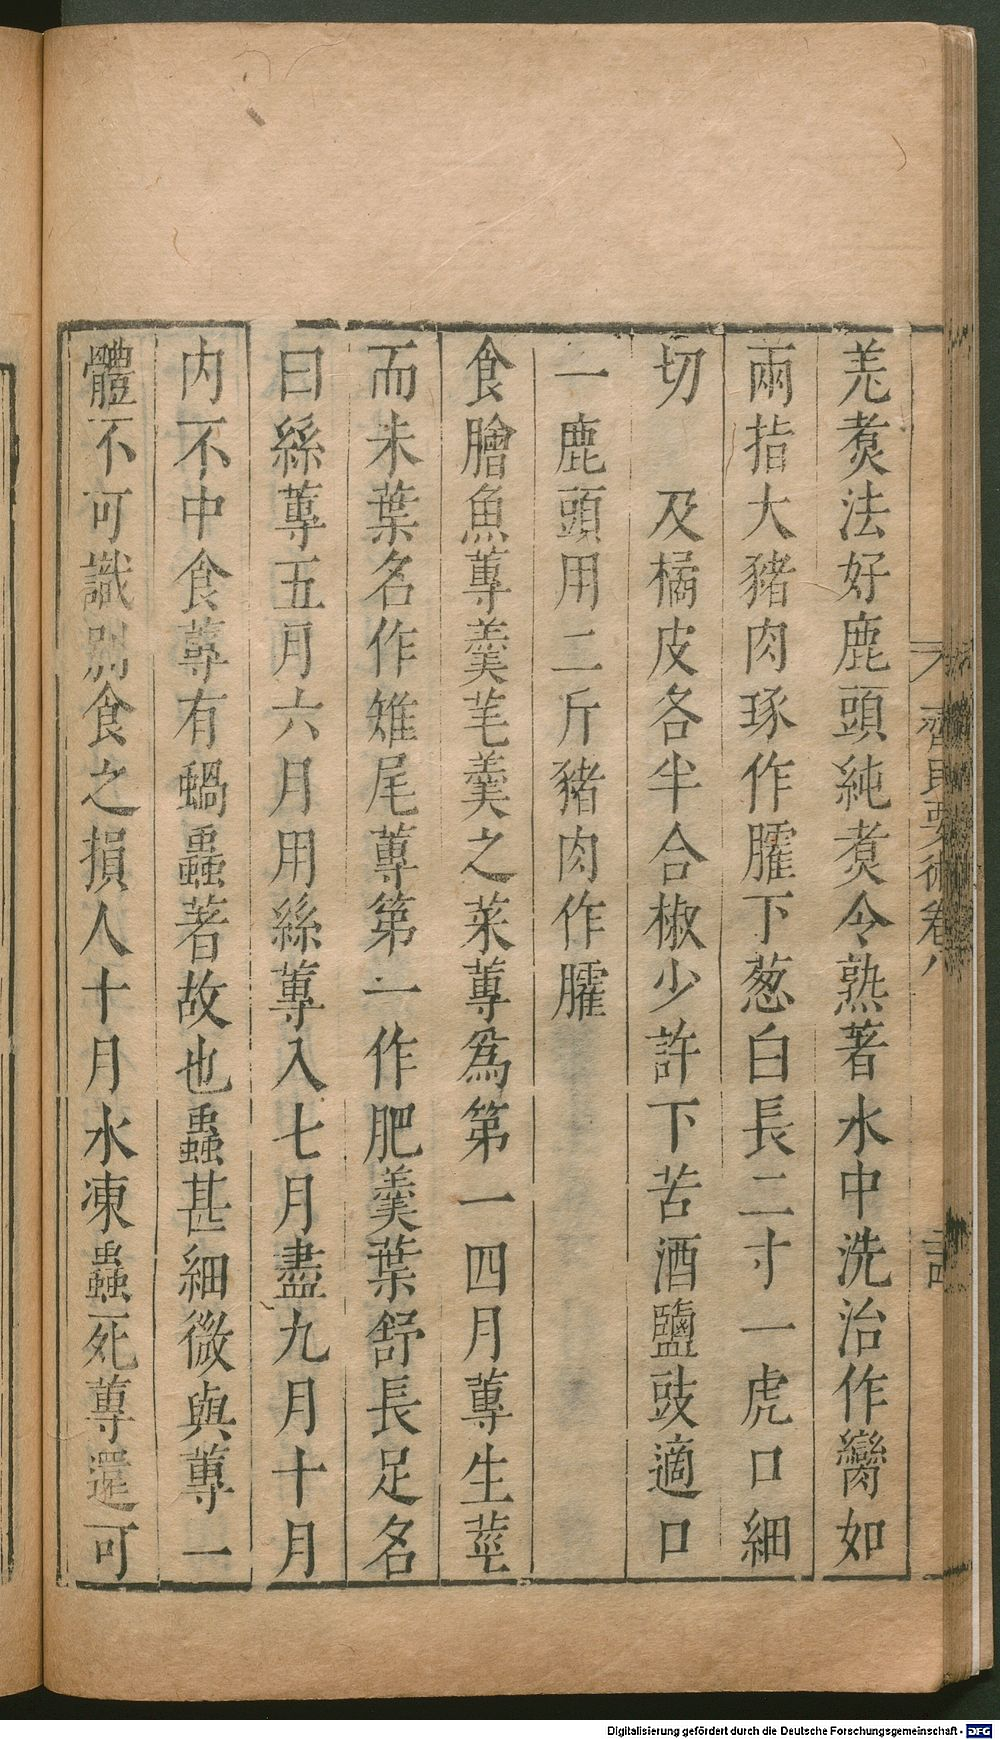 羌煑法好鹿頭純煑令熟著水中洗治作臠如
兩指大豬肉琢作臛下葱白長二寸一虎口細
切　及橘皮各半合椒少許下苦酒鹽豉適口
一鹿頭用二斤豬肉作臛
食膾魚蓴羹芼羹之菜蓴爲第一四月蓴生莖
而未葉名作雉尾蓴第一作肥羹葉舒長足名
曰絲蓴五月六月用絲蓴入七月盡九月十月
内不中食蓴有蝸蟲著故也蟲甚細微與蓴一
體不可識别食之損人十月水凍蟲死蓴還可
齊民要術卷八
Digitalisierung gefördert durch die Deutsche Forschungsgemeinschaft - DFG